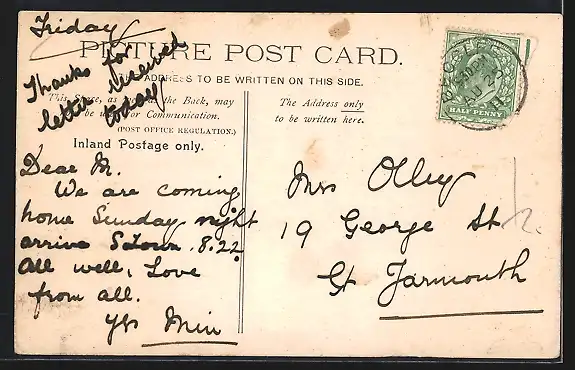 Friday
Thanks for
letter received
today
PICTURE POST CARD.
ADDRESS TO BE WRITTEN ON THIS SIDE.
This Space, as well as the Back, may
be used for Communication.
(POST OFFICE REGULATION.)
Inland Postage only.
The Address only
to be written here.
HALF PENNY
Dear M.
We are coming
home Sunday night
arrive S.Town 8.22.
All well, Love
from all.
Yrs Min
Mrs Olley
19 George St
Gt Yarmouth